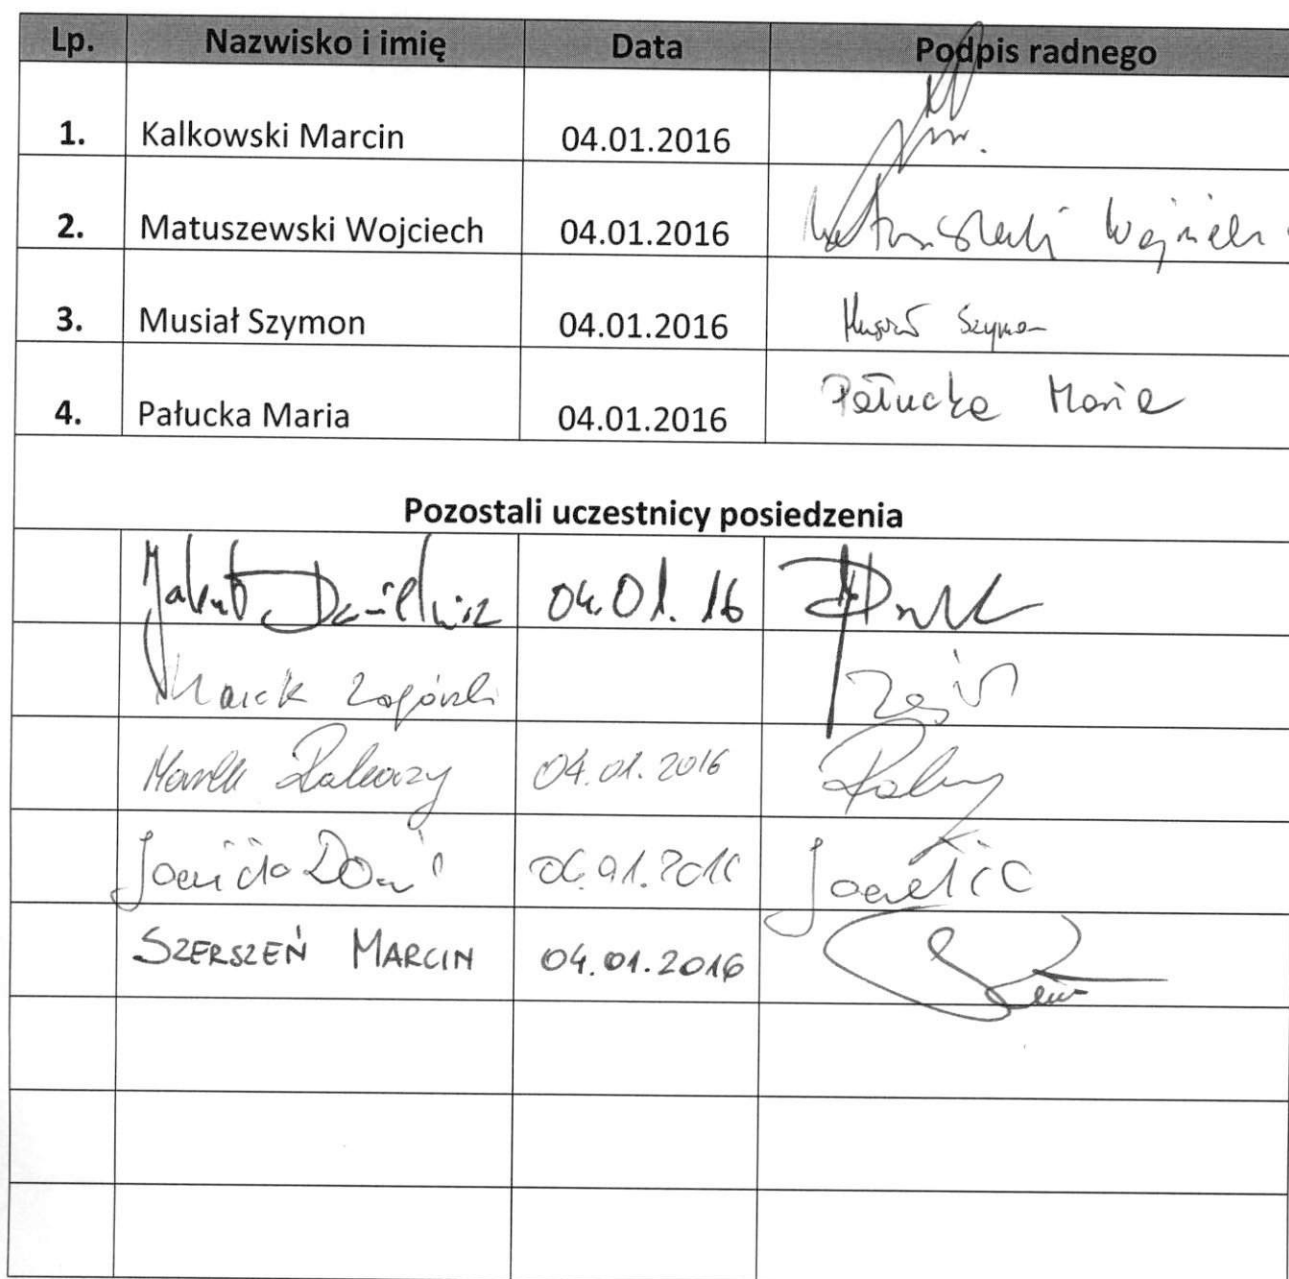 Lp. Nazwisko i imię Data Podpis radnego
1. Kalkowski Marcin 04.01.2016
2. Matuszewski Wojciech 04.01.2016 Matuszewski Wojciech
3. Musiał Szymon 04.01.2016 Musiał Szymon
4. Pałucka Maria 04.01.2016 Pałucka Maria
Pozostali uczestnicy posiedzenia
Jakub 04.01.16
Marek Zagórski
Marek 04.01.2016
SZERSZEŃ MARCIN 04.01.2016